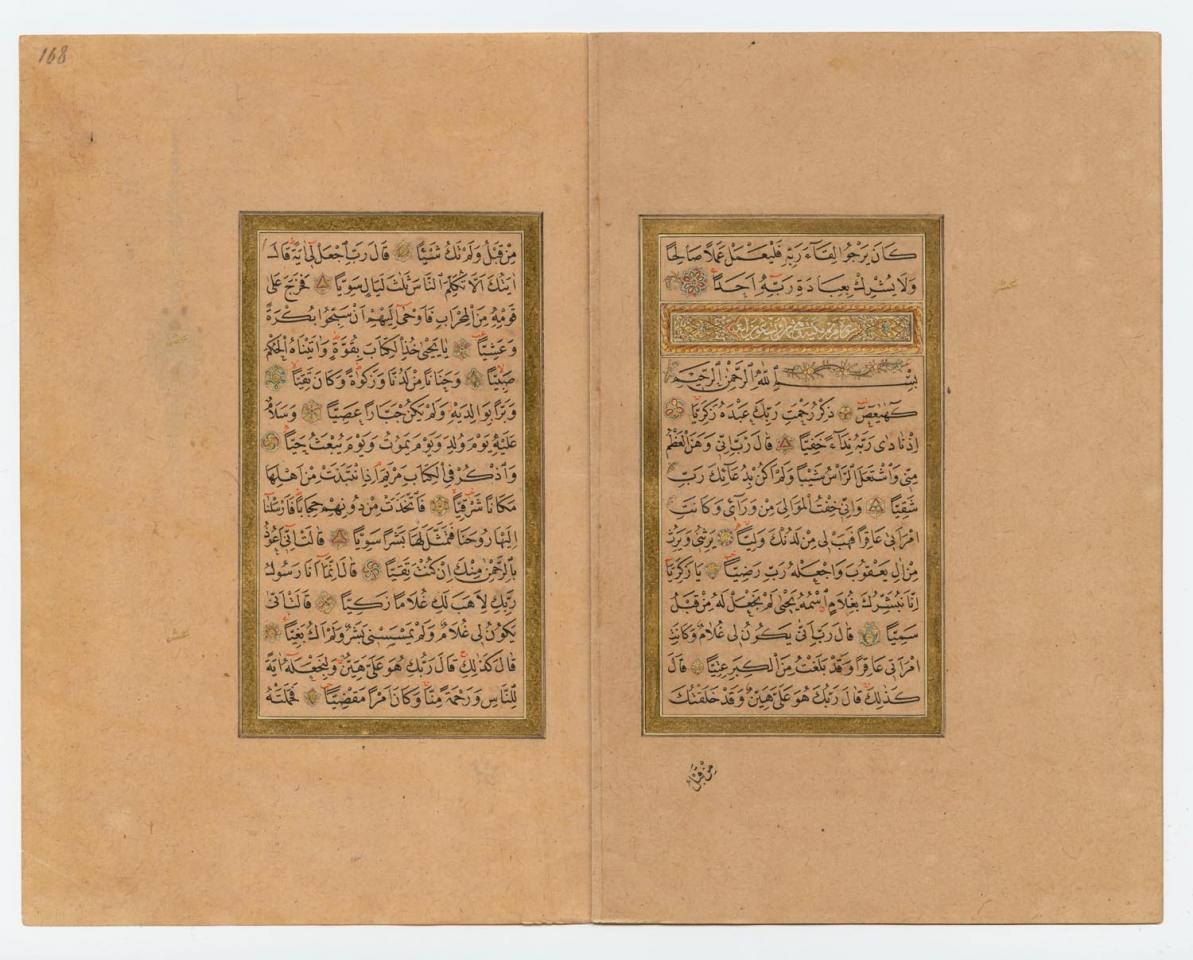 كَانَ يَرْجُوا لِقَاءَ رَبِّهِ فَلْيَعْمَلْ عَمَلاً صَالِحًا
وَلَا يُشْرِكْ بِعِبَادَةِ رَبِّهِ اَحَدًا
بِسْمِ اللّٰهِ الرَّحْمٰنِ الرَّحِيمِ
كهيعص ذِكْرُ رَحْمَتِ رَبِّكَ عَبْدَهُ زَكَرِيَّا
اِذْ نَادٰى رَبَّهُ نِدَاءً خَفِيًّا قَالَ رَبِّ اِنِّى وَهَنَ الْعَظْمُ
مِنِّى وَاشْتَعَلَ الرَّأْسُ شَيْبًا وَلَمْ اَكُنْ بِدُعَائِكَ رَبِّ
شَقِيًّا وَاِنِّى خِفْتُ الْمَوَالِىَ مِنْ وَرَائِى وَكَانَتِ
امْرَاَتِى عَاقِرًا فَهَبْ لِى مِنْ لَدُنْكَ وَلِيًّا يَرِثُنِى وَيَرِثُ
مِنْ اٰلِ يَعْقُوبَ وَاجْعَلْهُ رَبِّ رَضِيًّا يَا زَكَرِيَّا
اِنَّا نُبَشِّرُكَ بِغُلَامٍ اسْمُهُ يَحْيٰى لَمْ نَجْعَلْ لَهُ مِنْ قَبْلُ
سَمِيًّا قَالَ رَبِّ اَنّٰى يَكُونُ لِى غُلَامٌ وَكَانَتِ
امْرَاَتِى عَاقِرًا وَقَدْ بَلَغْتُ مِنَ الْكِبَرِ عِتِيًّا قَالَ
كَذٰلِكَ قَالَ رَبُّكَ هُوَ عَلَىَّ هَيِّنٌ وَقَدْ خَلَقْتُكَ
مِنْ قَبْلُ
168
مِنْ قَبْلُ وَلَمْ تَكُ شَيْئًا قَالَ رَبِّ اجْعَلْ لِى اٰيَةً قَالَ
اٰيَتُكَ اَلَّا تُكَلِّمَ النَّاسَ ثَلٰثَ لَيَالٍ سَوِيًّا فَخَرَجَ عَلٰى
قَوْمِهِ مِنَ الْمِحْرَابِ فَاَوْحٰى اِلَيْهِمْ اَنْ سَبِّحُوا بُكْرَةً
وَعَشِيًّا يَا يَحْيٰى خُذِ الْكِتَابَ بِقُوَّةٍ وَاٰتَيْنَاهُ الْحُكْمَ
صَبِيًّا وَحَنَانًا مِنْ لَدُنَّا وَزَكٰوةً وَكَانَ تَقِيًّا
وَبَرًّا بِوَالِدَيْهِ وَلَمْ يَكُنْ جَبَّارًا عَصِيًّا وَسَلَامٌ
عَلَيْهِ يَوْمَ وُلِدَ وَيَوْمَ يَمُوتُ وَيَوْمَ يُبْعَثُ حَيًّا
وَاذْكُرْ فِى الْكِتَابِ مَرْيَمَ اِذِ انْتَبَذَتْ مِنْ اَهْلِهَا
مَكَانًا شَرْقِيًّا فَاتَّخَذَتْ مِنْ دُونِهِمْ حِجَابًا فَاَرْسَلْنَا
اِلَيْهَا رُوحَنَا فَتَمَثَّلَ لَهَا بَشَرًا سَوِيًّا قَالَتْ اِنِّى اَعُوذُ
بِالرَّحْمٰنِ مِنْكَ اِنْ كُنْتَ تَقِيًّا قَالَ اِنَّمَا اَنَا رَسُولُ
رَبِّكِ لِاَهَبَ لَكِ غُلَامًا زَكِيًّا قَالَتْ اَنّٰى
يَكُونُ لِى غُلَامٌ وَلَمْ يَمْسَسْنِى بَشَرٌ وَلَمْ اَكُ بَغِيًّا
قَالَ كَذٰلِكِ قَالَ رَبُّكِ هُوَ عَلَىَّ هَيِّنٌ وَلِنَجْعَلَهُ اٰيَةً
لِلنَّاسِ وَرَحْمَةً مِنَّا وَكَانَ اَمْرًا مَقْضِيًّا فَحَمَلَتْهُ